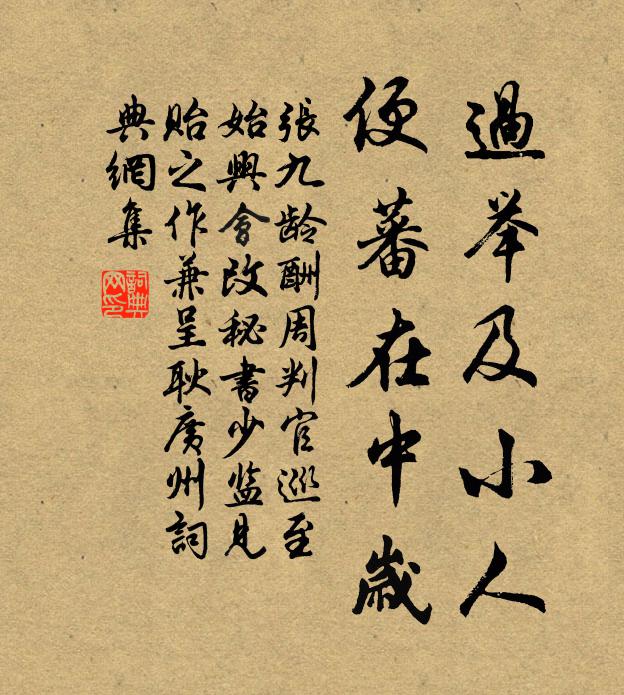 過举及小人
便蕃在中歲
張九龄酬周判官巡至
始興會改秘書少監見
貽之作兼呈耿廣州詞
典網集
詞典網印